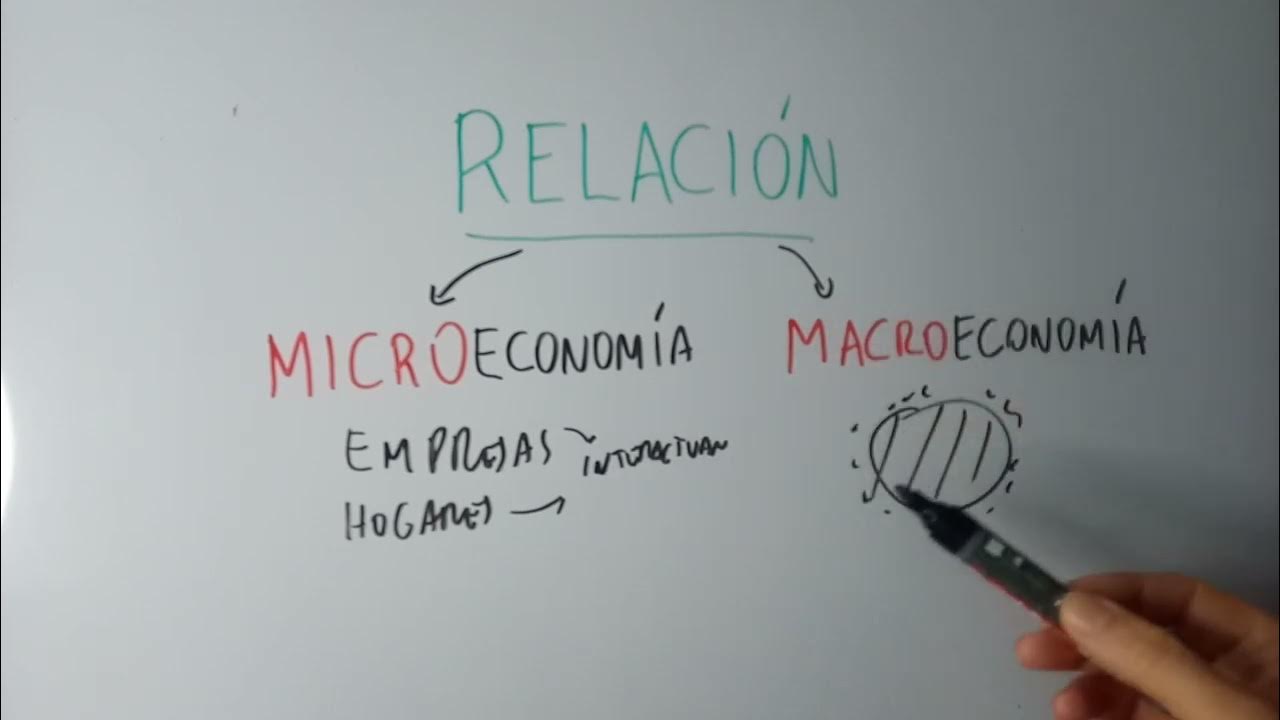 RELACIÓN
MICROECONOMÍA
MACROECONOMÍA
EMPRESAS
INTERACTUAN
HOGARES